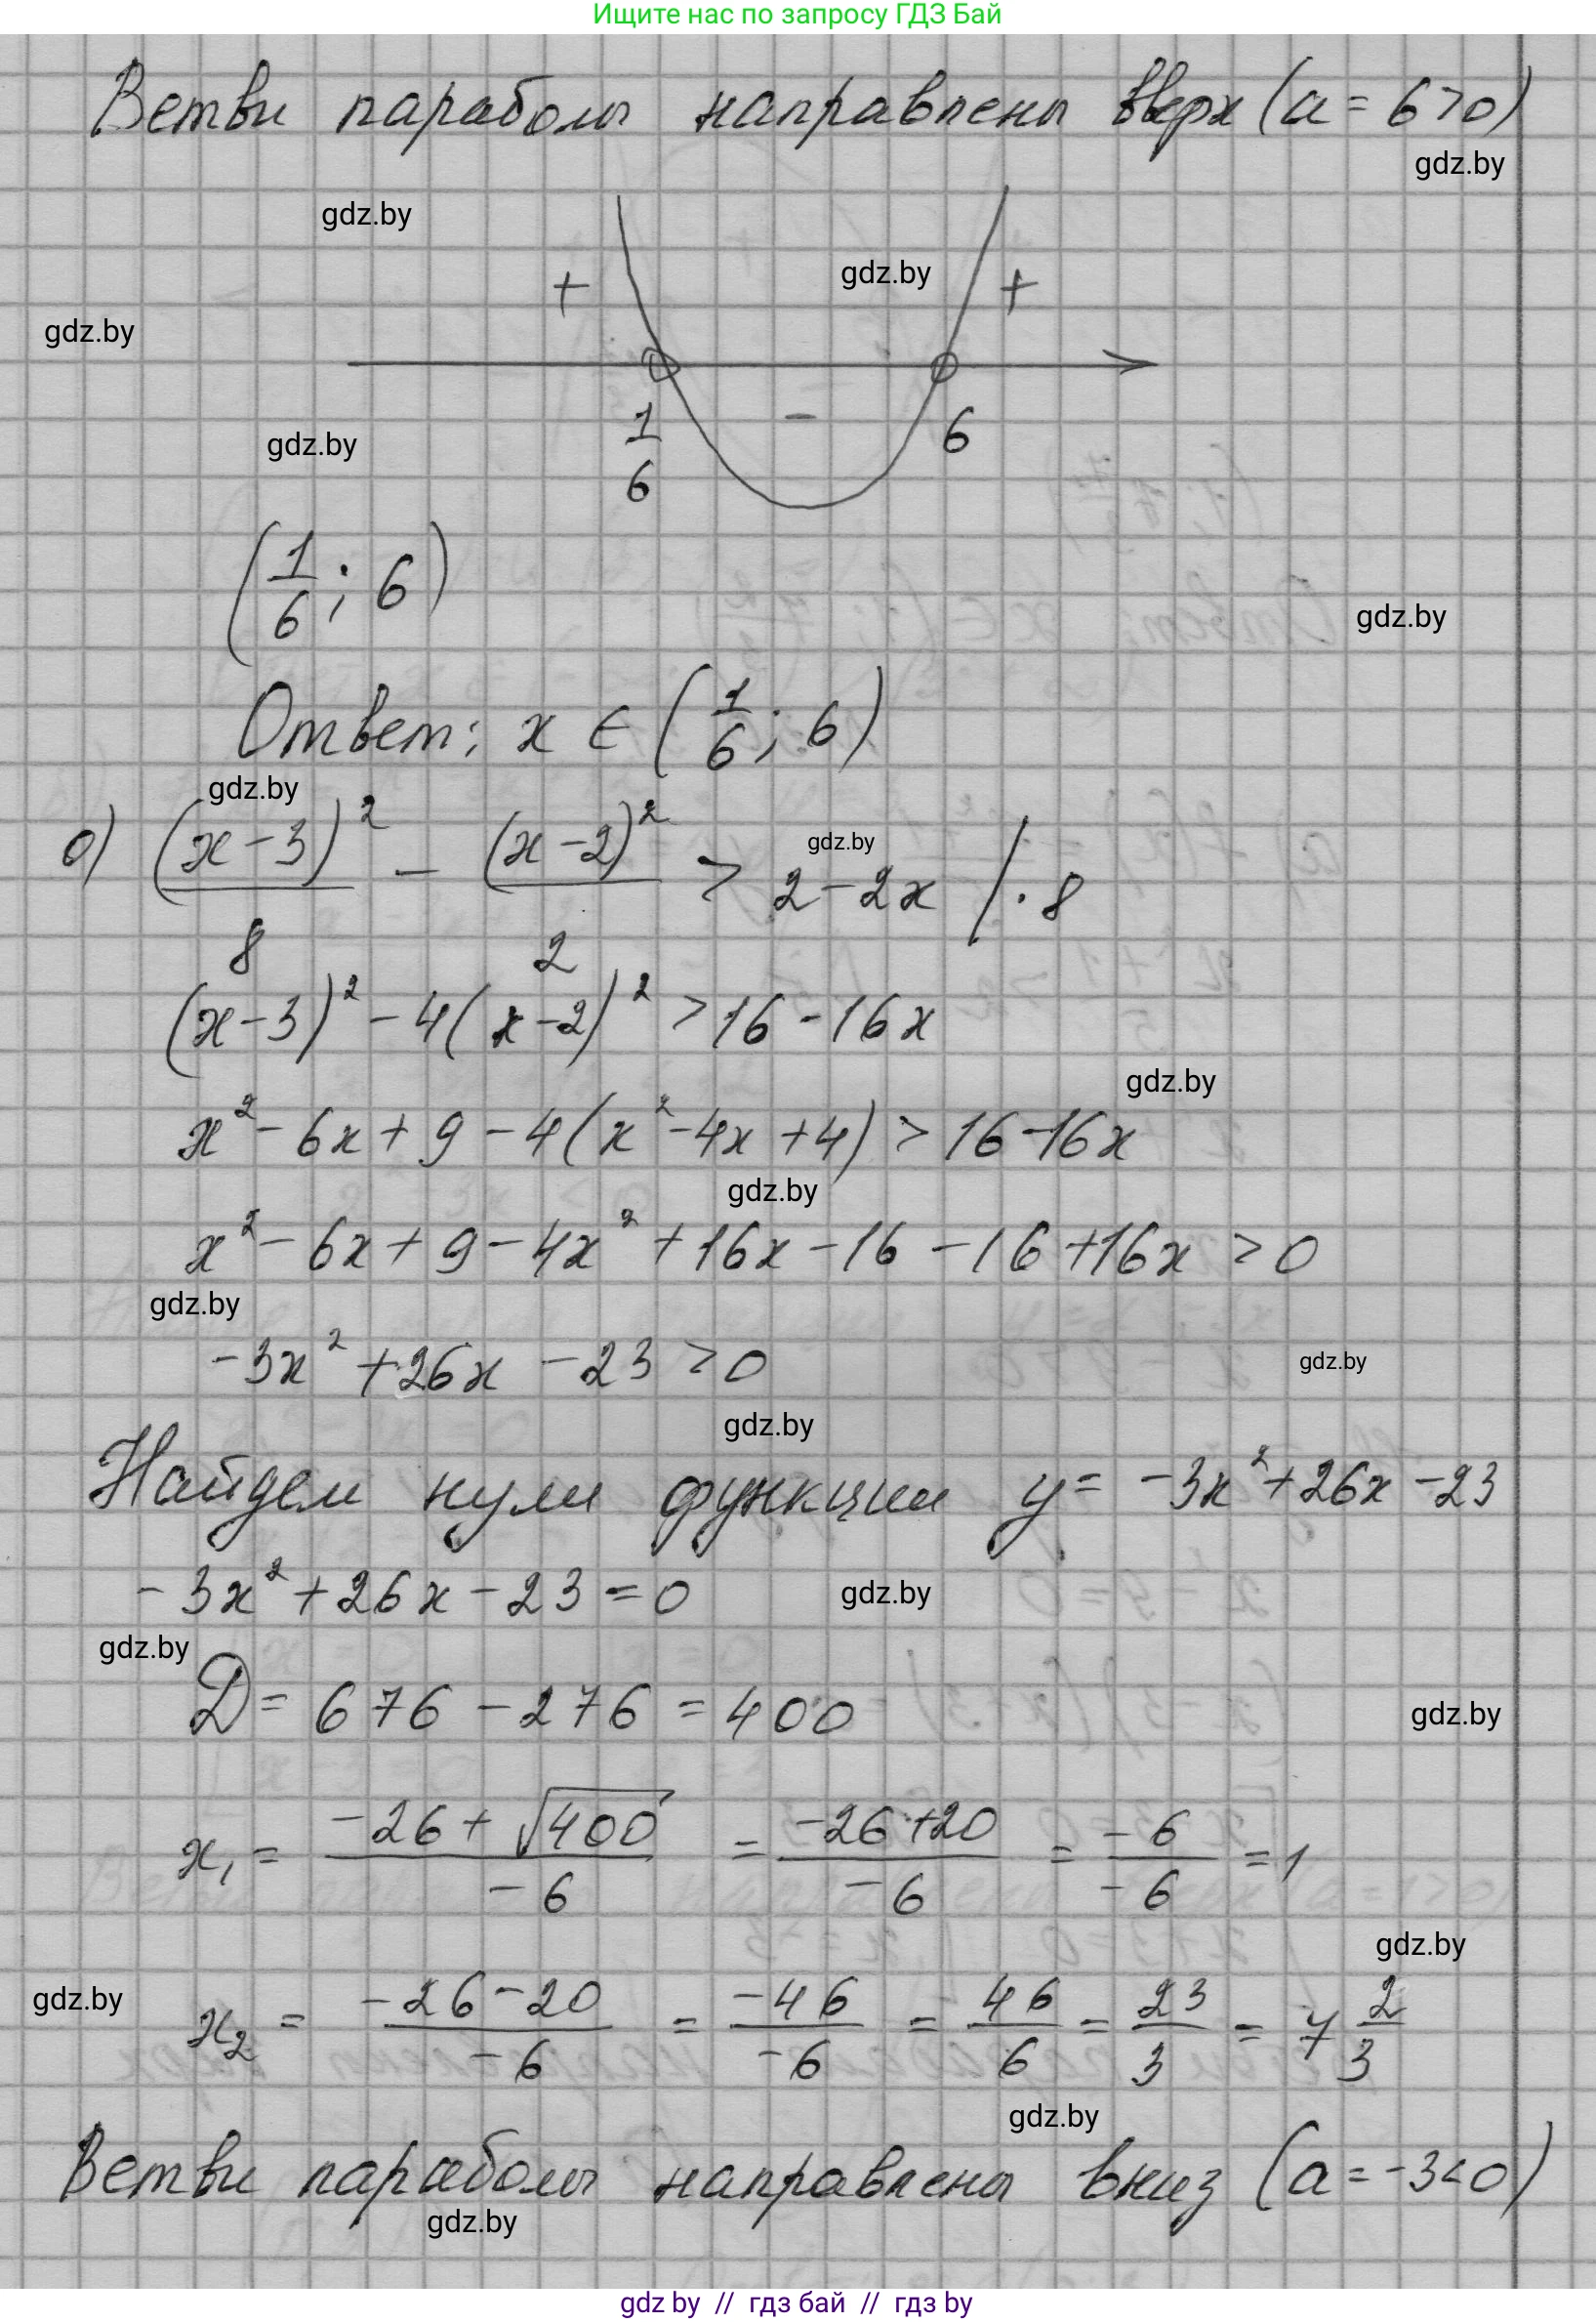 Ищите нас по запросу ГДЗ Бай
Ветви параболы направлены вверх (a = 6 > 0)
gdz.by
gdz.by
gdz.by
+ +
gdz.by
1/6 - 6
gdz.by
(1/6; 6)
gdz.by
Ответ: x ∈ (1/6; 6)
gdz.by
о) (x-3)²/8 - (x-2)²/2 > 2-2x /·8
gdz.by
(x-3)² - 4(x-2)² > 16-16x
gdz.by
x² - 6x + 9 - 4(x² - 4x + 4) > 16-16x
gdz.by
x² - 6x + 9 - 4x² + 16x - 16 - 16 + 16x > 0
gdz.by
-3x² + 26x - 23 > 0
gdz.by
gdz.by
Найдем нули функции y = -3x² + 26x - 23
-3x² + 26x - 23 = 0
gdz.by
gdz.by
D = 676 - 276 = 400
gdz.by
x₁ = (-26 + √400)/-6 = (-26 + 20)/-6 = -6/-6 = 1
gdz.by
gdz.by
x₂ = (-26-20)/-6 = -46/-6 = 46/6 = 23/3 = 7 2/3
gdz.by
Ветви параболы направлены вниз (a = -3 < 0)
gdz.by
gdz by // гдз бай // гдз by